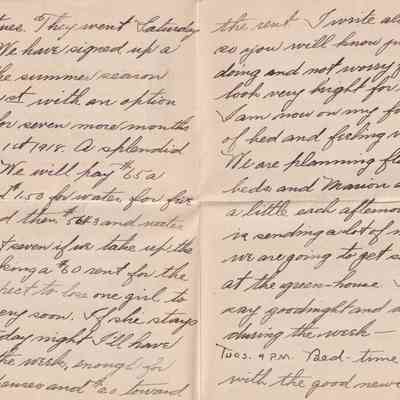 Tues. They went Saturday
We have signed up a
the summer season
1st with an option
for seven more months
1st 1918. A splendid
We will pay $65 a
$1.50 for water, for five
d then $56.43 and water
seven if we take up the
being a $60 rent for the
pect to lose one girl to
very soon. If she stays
day night I'll have
the week, enough for
expenses and $20 toward
the rent I write al
so you will know ju
doing and not worry f
look very bright for
I am now on my fo
of bed and feeling w
We are planning fl
beds and Marion a
a little each afternoo
is sending a lot of
we are going to get s
at the green-house.
say goodnight and
during the week—
Tues. 9 P.M. Bed-time
with the good news